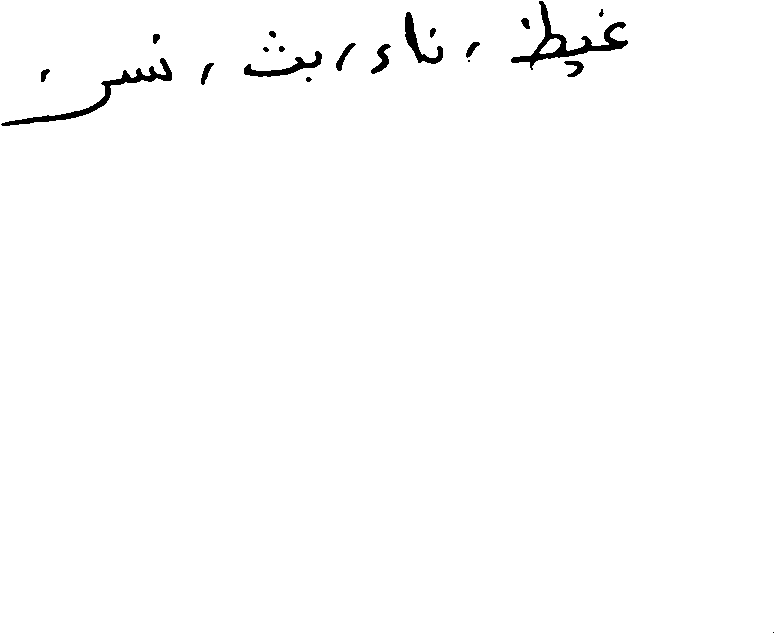 غيظ ، ناء ، بث ، نسر